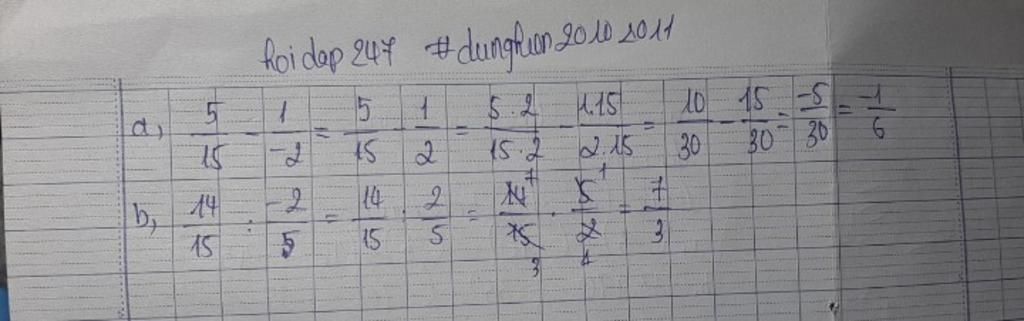 hoidap 247 #dunghuon20102011
a, 5/15 - 1/-2 = 5/15 - 1/2 = 5.2/15.2 - 1.15/2.15 = 10/30 - 15/30 = -5/30 = -1/6
b, 14/15 : -2/5 = 14/15 : 2/5 = 14 7/15 3 . 5 1/2 1 = 7/3